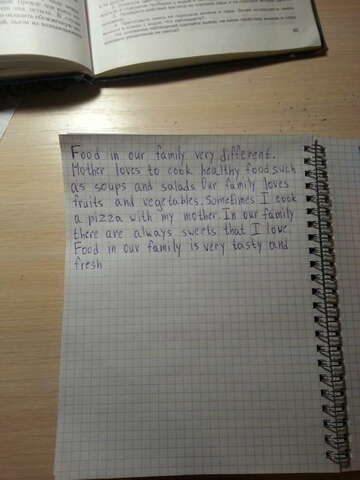 Food in our family very different.
Mother loves to cook healthy food such
as soups and salads Our family loves
fruits and vegetables. Sometimes I cook
a pizza with my mother. In our family
there are always sweets that I love.
Food in our family is very tasty and
fresh